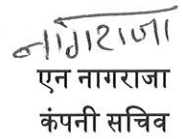 नागराजा
एन नागराजा
कंपनी सचिव